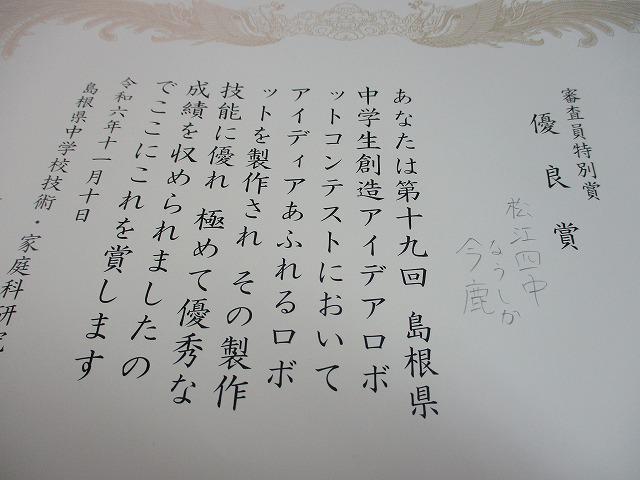 審査員特別賞
優良賞
松江四中
なうしか
今鹿
あなたは第十九回 島根県
中学生創造アイデアロボ
ットコンテストにおいて
アイディアあふれるロボ
ットを製作され その製作
技能に優れ 極めて優秀な
成績を収められましたの
でここにこれを賞します
令和六年十一月十日
島根県中学校技術・家庭科研究